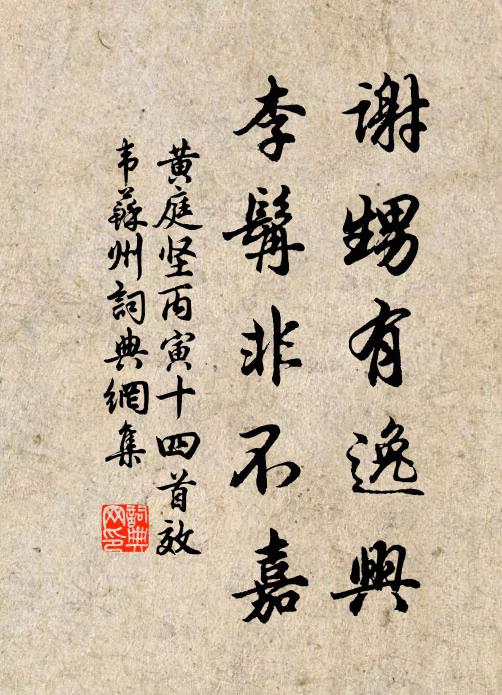 謝甥有逸興
李髯非不嘉
黄庭坚丙寅十四首效
韦蘇州詞典網集
詞典
网印